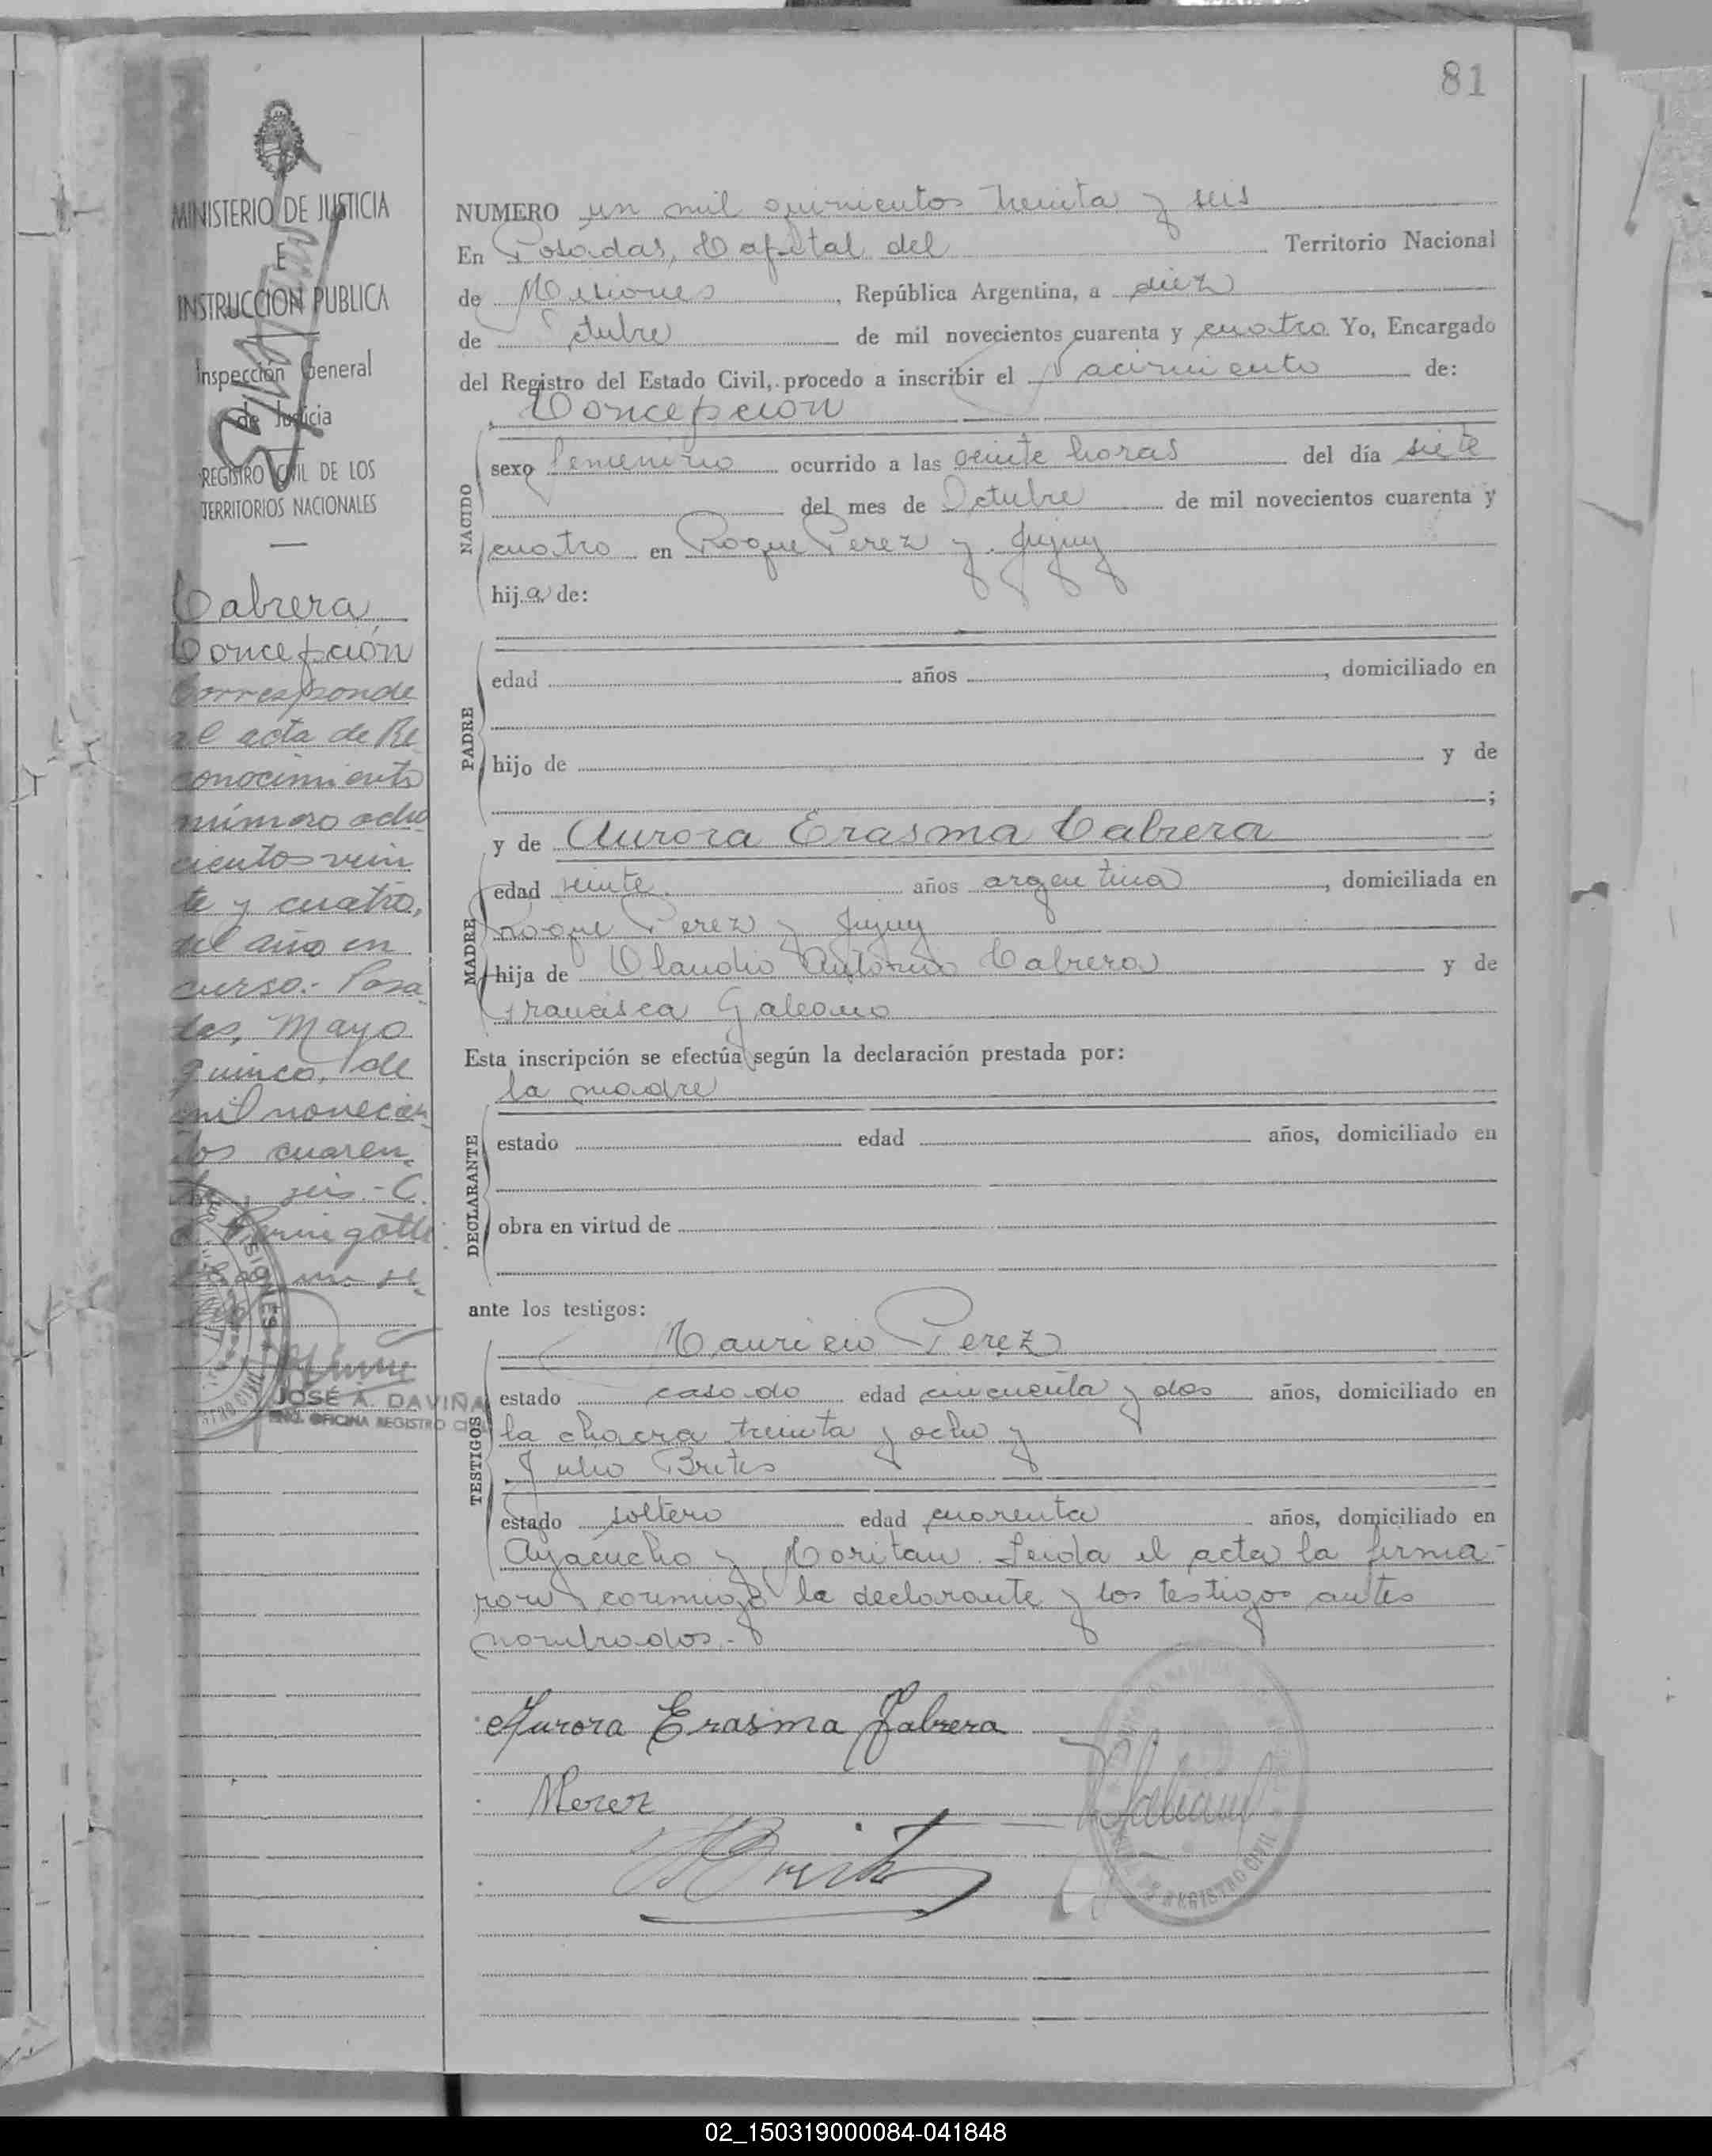 81
MINISTERIO DE JUSTICIA
E
INSTRUCCION PUBLICA
Inspección General
de Justicia
REGISTRO CIVIL DE LOS
TERRITORIOS NACIONALES
Cabrera
Concepción
Corresponde
al acta de Re
conocimiento
número ocho
cientos vein
te y cuatro,
del año en
curso.- Posa
das, Mayo
quince, de
mil novecien
tos cuaren
ta y seis.- C.
JOSÉ A. DAVIÑA
ENC. OFICINA REGISTRO CIVIL
NUMERO un mil quinientos treinta y seis
En Posadas, Capital del Territorio Nacional
de Misiones, República Argentina, a diez
de Octubre de mil novecientos cuarenta y cuatro Yo, Encargado
del Registro del Estado Civil, procedo a inscribir el Nacimiento de:
Concepción
NACIDO
sexo femenino ocurrido a las veinte horas del día siete
del mes de Octubre de mil novecientos cuarenta y
cuatro en Roque Perez y Jujuy
hija de:
PADRE
edad años , domiciliado en
hijo de y de
;
y de Aurora Erasma Cabrera
MADRE
edad veinte años argentina, domiciliada en
Roque Perez y Jujuy
hija de Claudio Antonio Cabrera y de
Francisca Galeano
Esta inscripción se efectúa según la declaración prestada por:
la madre
DECLARANTE
estado edad años, domiciliado en
obra en virtud de
ante los testigos:
Mauricio Perez
TESTIGOS
estado casado edad cincuenta y dos años, domiciliado en
la chacra treinta y ocho y
Julio Brites
estado soltero edad cuarenta años, domiciliado en
Ayacucho y Moritan. Leida el acta la firma-
ron conmigo la declarante y los testigos antes
nombrados.-
Aurora Erasma Cabrera
MPerez
REGISTRO CIVIL
02_150319000084-041848